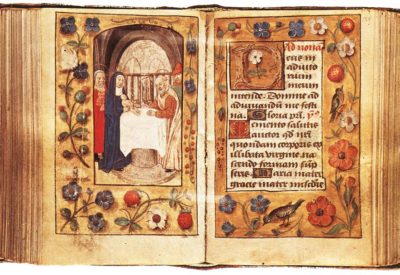 Ad nona
Deus in
adiuto
rium
meum
intende. Domine ad
adiuuandū me festi
na. Gloria p̄ri.
Memento salutis
auctor qd n̄ri
quondam corporis ex
illibata virgine na
scendo formam sump
seris. Maria mater
gracie mater mīe